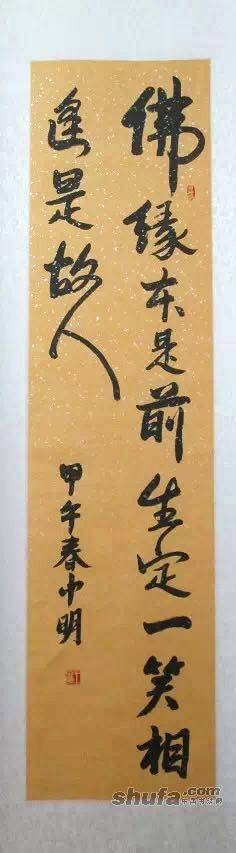 佛緣本是前生定一笑相
逢是故人
甲午春小明
shufa.com